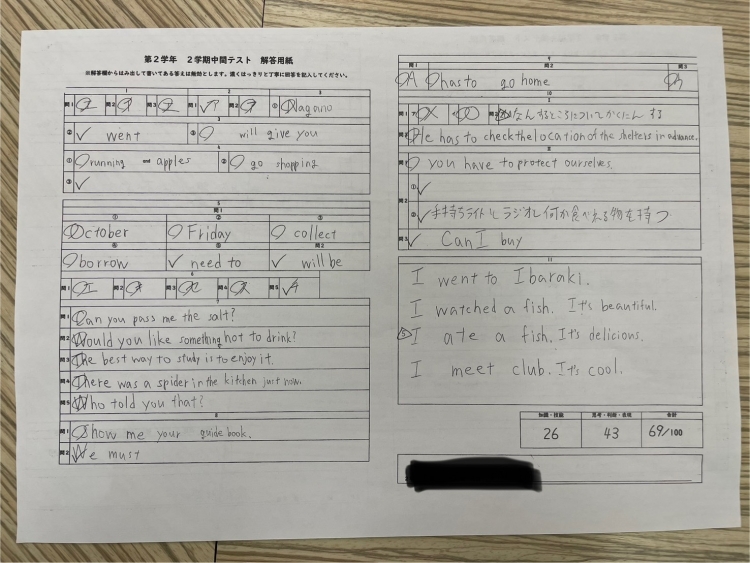 第２学年 ２学期中間テスト 解答用紙
※解答欄からはみ出して書いてある答えは無効とします。濃くはっきりと丁寧に回答を記入してください。
1 2 3
問1 問2 問3 問1 問2 ① Nagano
3
② went ③ will give you
4
① running apples ② go shopping
③
5
① ② ③
October Friday collect
④ ⑤ 問2
borrow need to will be
6
問1 I 問2 問3 問4 問5
7
問1 Can you pass me the salt?
問2 Would you like something hot to drink?
問3 The best way to study is to enjoy it.
問4 There was a spider in the kitchen just now.
問5 Who told you that?
8
問1 Show me your guide book.
問2 We must
9
問1 問2 問3
A has to go home
10
問1 問2 問3 するところについてかくにんする
He has to check the location of the shelters in advance.
you have to protect ourselves.
①
②手持ちライトとラジオと何か食べれる物を持つ
問3 Can I buy
11
I went to Ibaraki.
I watched a fish. It's beautiful.
5 I ate a fish. It's delicious.
I meet club. It's cool.
知識・技能 思考・判断・表現 合計
26 43 69/100